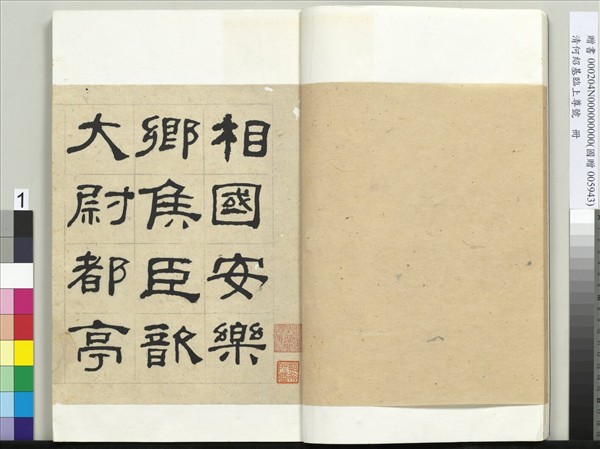 贈書 000204N000000000(國贈 005943)
清何紹基臨上尊號 冊
相國安樂
鄉侯臣歆
大尉都亭
1